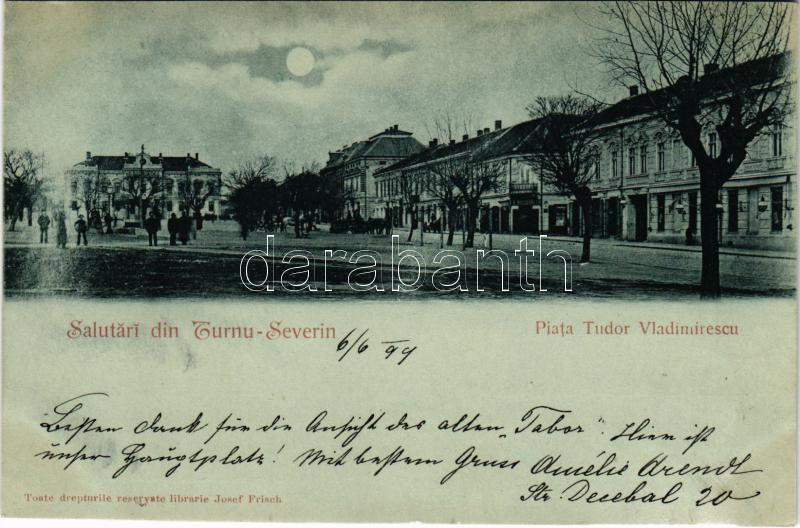 darabanth
Salutări din Turnu-Severin
6/6 99
Piața Tudor Vladimirescu
Besten dank für die Ansicht des alten „Tabor“. Hier ist
unser Hauptplatz! Mit bestem Gruss Amélie Arendt
Str. Decebal 20
Toate drepturile reservate librarie Josef Frisch